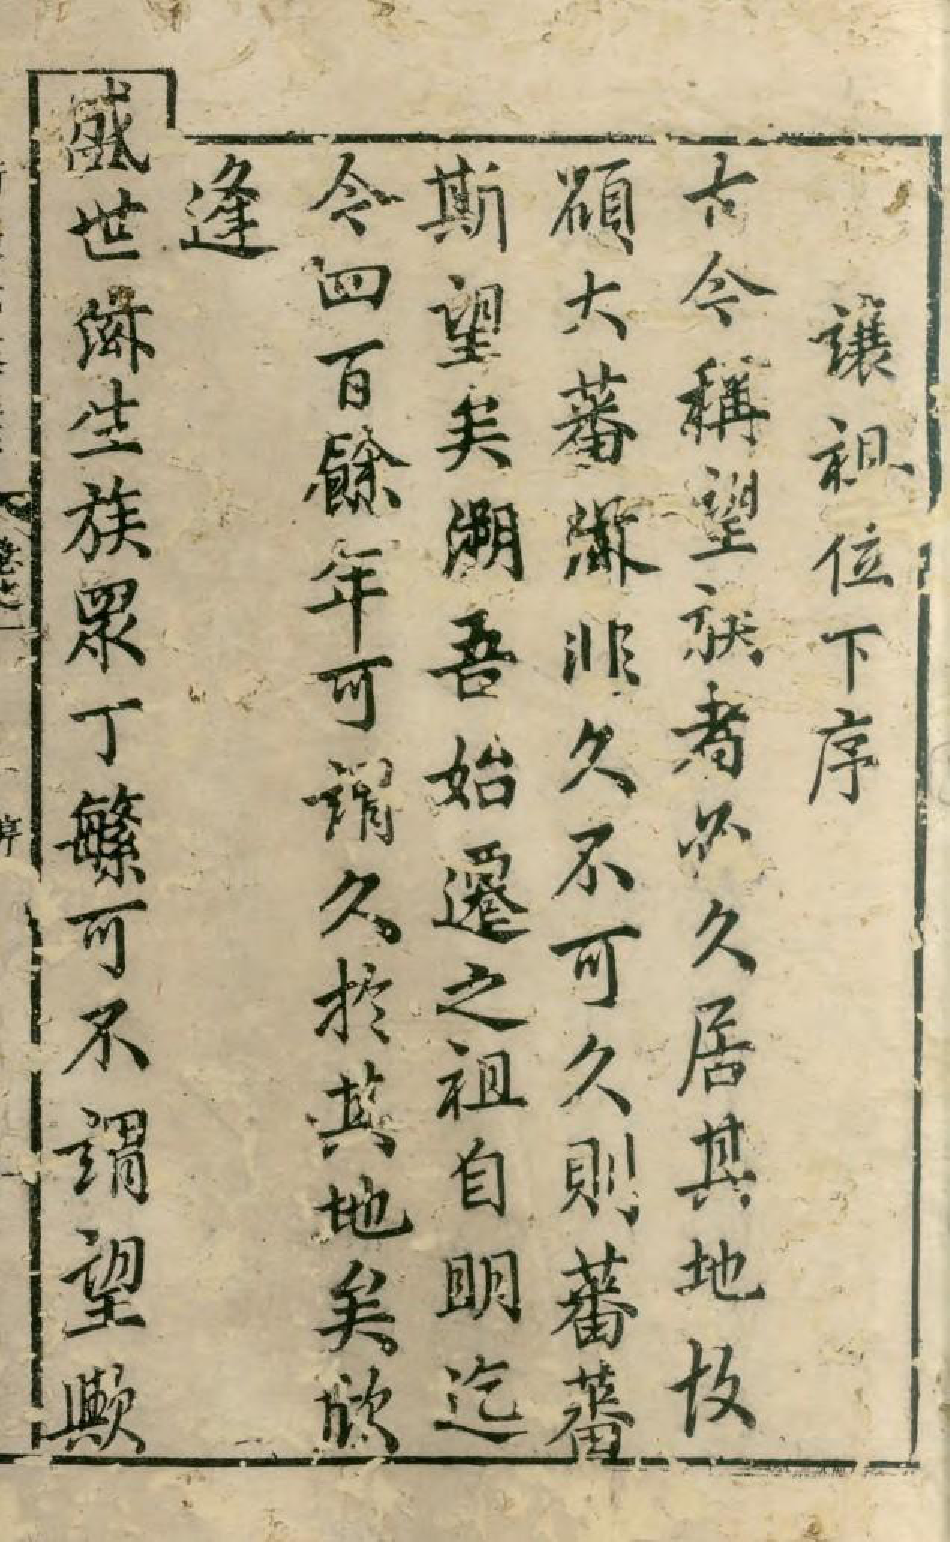 讓祖位下序
古今稱望族者必久居其地故
碩大蕃衍非久不可久則蕃蕃
斯望矣溯吾始遷之祖自明迄
今四百餘年可謂久於其地矣欣
逢
盛世滋生族眾丁繁可不謂望歟
序